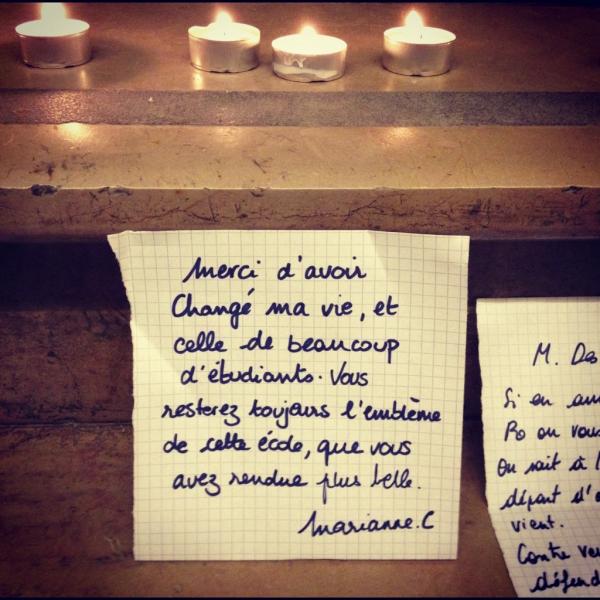 Merci d'avoir
Changé ma vie, et
celle de beaucoup
d'étudiants. Vous
resterez toujours l'emblème
de cette école, que vous
avez rendue plus belle.
Marianne.C
M. Des
Si en
Po on vous
On sait à l
départ d'
vient.
Contre
défend